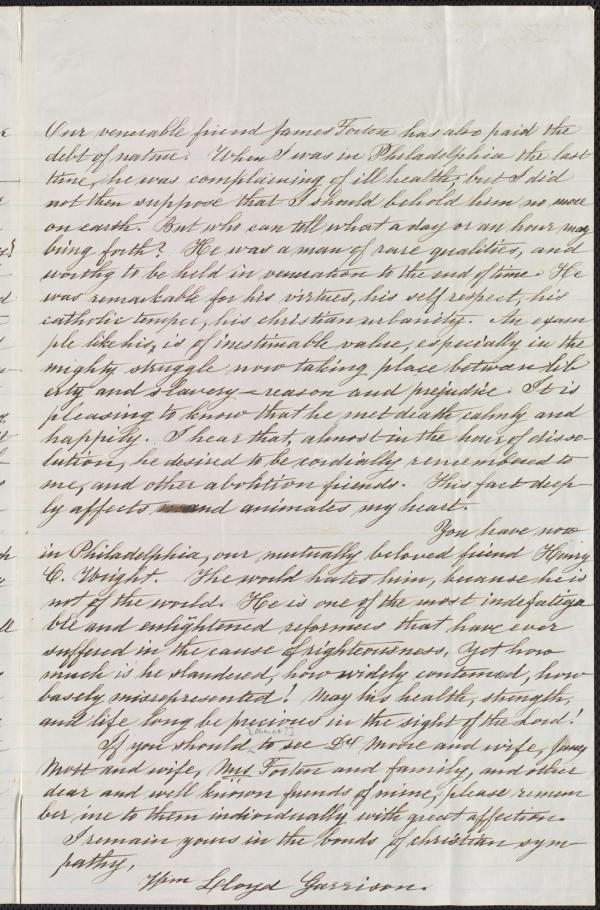 Our venerable friend James Forten has also paid the
debt of nature. When I was in Philadelphia the last
time, he was complaining of ill health; but I did
not then suppose that I should behold him no more
on earth. But who can tell what a day or an hour may
bring forth? He was a man of rare qualities, and
worthy to be held in veneration to the end of time. He
was remarkable for his virtues, his self respect, his
catholic temper, his christian urbanity. An exam
ple like his, is of inestimable value, especially in the
mighty struggle now taking place between lib
erty and slavery – reason and prejudice. It is
pleasing to know that he met death calmly and
happily. I hear that, almost in the hour of disso-
lution, he desired to be cordially remembered to
me, and other abolition friends. This fact deep-
ly affects and animates my heart.
You have now
in Philadelphia, our mutually beloved friend Henry
C. Wright. The world hates him, because he is
not of the world. He is one of the most indefatiga
ble and enlightened reformers that have ever
suffered in the cause of righteousness. Yet how
much is he slandered, how widely contemned, how
basely misrepresented! May his health, strength,
and life long be precious in the sight of the Lord!
[chance?]
If you should to see Dr Moore and wife, James
Mott and wife, Mrs Forten and family, and other
dear and well known friends of mine, please remem
ber me to them individually with great affection.
I remain yours in the bonds of christian sym-
pathy,
Wm Lloyd Garrison.